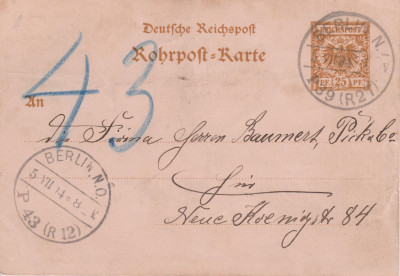 Deutsche Reichspost
Rohrpost-Karte
REICHSPOST
PF. 25 PF.
BERLIN, N.
P 99 (R 27)
43
An
die Firma Herren Baumert, Pick & Co
hier
Neue Koenigstr 84
BERLIN, N.O.
P 43 (R 12)